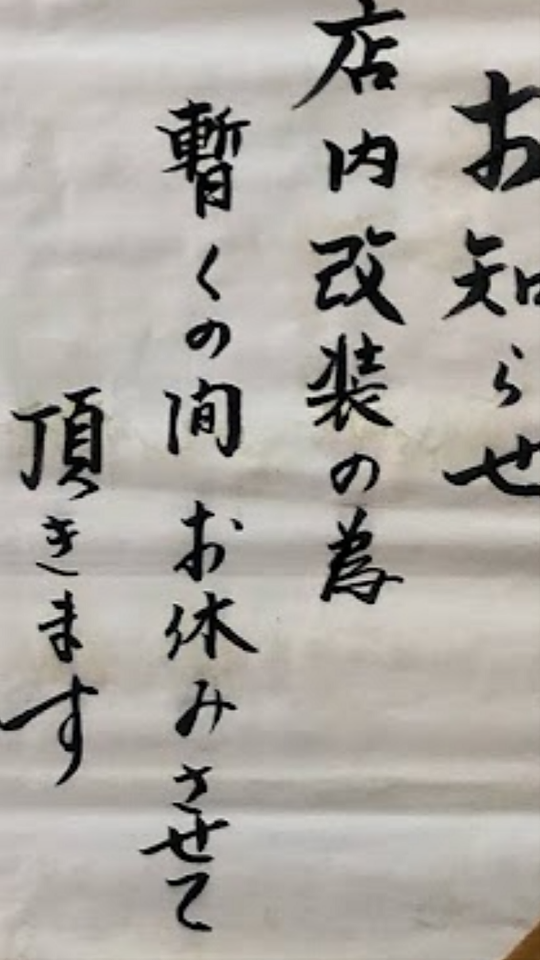 お知らせ
店内改装の為
暫くの間お休みさせて
頂きます